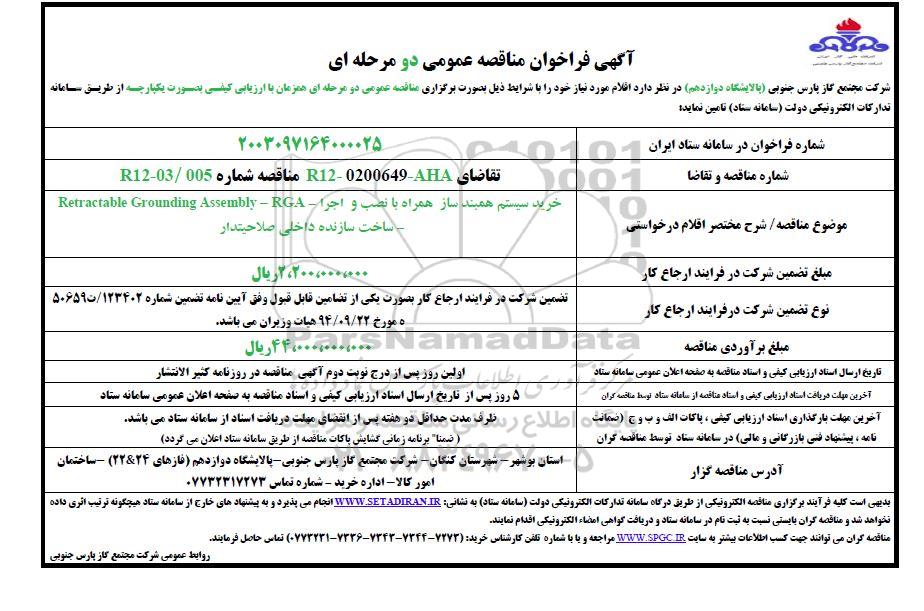 آگهی فراخوان مناقصه عمومی دو مرحله ای
شرکت مجتمع گاز پارس جنوبی (پالایشگاه دوازدهم) در نظر دارد اقلام مورد نیاز خود را با شرایط ذیل بصورت برگزاری مناقصه عمومی دو مرحله ای همزمان با ارزیابی کیفی بصورت یکپارچه از طریق سامانه
تدارکات الکترونیکی دولت (سامانه ستاد) تامین نماید:
شماره فراخوان در سامانه ستاد ایران
۲۰۰۳۰۹۷۱۶۴۰۰۰۰۲۵
شماره مناقصه و تقاضا
تقاضای R12- 0200649-AHA مناقصه شماره R12-03/ 005
موضوع مناقصه/ شرح مختصر اقلام درخواستی
خرید سیستم همبند ساز همراه با نصب و اجرا – Retractable Grounding Assembly – RGA
– ساخت سازنده داخلی صلاحیتدار
مبلغ تضمین شرکت در فرایند ارجاع کار
۲،۲۰۰،۰۰۰،۰۰۰ریال
نوع تضمین شرکت درفرایند ارجاع کار
تضمین شرکت در فرایند ارجاع کار بصورت یکی از تضامین قابل قبول وفق آیین نامه تضمین شماره ۱۲۳۴۰۲/ت۵۰۶۵۹
ه مورخ ۹۴/۰۹/۲۲ هیات وزیران می باشد.
مبلغ برآوردی مناقصه
۴۴،۰۰۰،۰۰۰،۰۰۰ریال
تاریخ ارسال اسناد ارزیابی کیفی و اسناد مناقصه به صفحه اعلان عمومی سامانه ستاد
اولین روز پس از درج نوبت دوم آگهی مناقصه در روزنامه کثیر الانتشار
آخرین مهلت دریافت اسناد ارزیابی کیفی و اسناد مناقصه از سامانه ستاد توسط مناقصه گران
۵ روز پس از تاریخ ارسال اسناد ارزیابی کیفی و اسناد مناقصه به صفحه اعلان عمومی سامانه ستاد
آخرین مهلت بارگذاری اسناد ارزیابی کیفی ، پاکات الف و ب و ج (ضمانت
نامه ، پیشنهاد فنی بازرگانی و مالی) در سامانه ستاد توسط مناقصه گران
ظرف مدت حداقل دو هفته پس از انقضای مهلت دریافت اسناد از سامانه ستاد می باشد.
( ضمنا" برنامه زمانی گشایش پاکات مناقصه از طریق سامانه ستاد اعلان می گردد)
آدرس مناقصه گزار
استان بوشهر– شهرستان کنگان– شرکت مجتمع گاز پارس جنوبی–پالایشگاه دوازدهم (فازهای ۲۴&۲۲) –ساختمان
امور کالا– اداره خرید – شماره تماس ۰۷۷۳۲۳۱۷۲۷۳
بدیهی است کلیه فرآیند برگزاری مناقصه الکترونیکی از طریق درگاه سامانه تدارکات الکترونیکی دولت (سامانه ستاد) به نشانی: WWW.SETADIRAN.IR انجام می پذیرد و به پیشنهاد های خارج از سامانه ستاد هیچگونه ترتیب اثری داده
نخواهد شد و مناقصه گران بایستی نسبت به ثبت نام در سامانه ستاد و دریافت گواهی امضاء الکترونیکی اقدام نمایند.
مناقصه گران می توانند جهت کسب اطلاعات بیشتر به سایت WWW.SPGC.IR مراجعه و یا با شماره تلفن کارشناس خرید: (۷۲۷۳–۷۳۴۴–۷۳۴۳–۷۳۳۶–۰۷۷۳۲۳۱) تماس حاصل فرمایند.
روابط عمومی شرکت مجتمع گاز پارس جنوبی
ParsNamadData